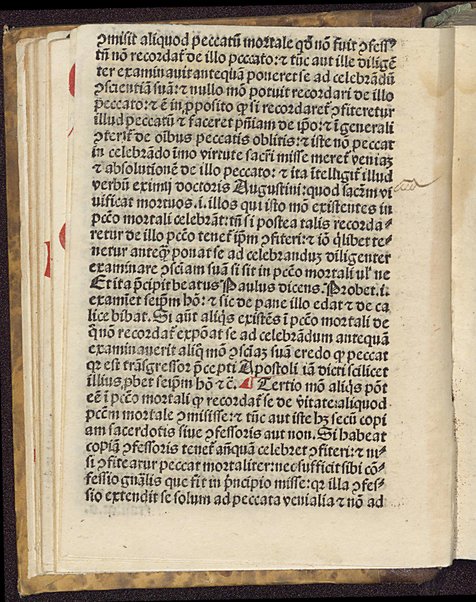 ꝯmisit aliquod peccatũ mortale qđ nõ fuit ꝯfess⁹
tñ nõ recordat̃ de illo peccato: ⁊ tũc aut ille diligẽ
ter examinauit antequã poneret se ad celebrãdũ
ꝯscientiã suã: ⁊ nullo mõ potuit recordari de illo
peccato: ⁊ ẽ in ꝓposito ꝙ si recordaret̃ ꝯfiteretur
illud peccatũ ⁊ faceret pñiam de ip̃o: ⁊ ĩ generali
ꝯterit̃ de oĩbus peccatis oblitis: ⁊ iste nõ peccat
in celebrãdo ĩmo virtute sacr̃i misse meret̃ veniaꝫ
⁊ absolutionẽ de illo peccato: ⁊ ita ĩtelligit̃ illud
verbũ eximij doctoris Augustini: quod sacr̃m vi
uificat mortuos .i. illos qui isto mõ existentes in
pctõ mortali celebrãt: tñ si postea talis recorda⸗
retur de illo pctõ tenet̃ ip̃m ꝯfiteri: ⁊ iõ q̃libet te⸗
netur anteqꝫ ponat se ad celebranduꝫ diligenter
examinare ꝯsciam suã si sit in pctõ mortali vl' ne
Et ita p̃cipit beatus Paulus dicens. Probet .i.
examinet seip̃m hõ: ⁊ sic de pane illo edat ⁊ de ca
lice bibat. Si aũt aliq̃s existẽs ĩ pctõ mortali de
q̃ nõ recordat̃ expõat se ad celebrãdum antequã
examinauerit aliq̃ mõ ꝯsciaꝫ suã credo ꝙ peccat
qꝛ est trãsgressor p̃cepti Apostoli iã dicti scilicet
illius ꝓbet seip̃m hõ ⁊ c̃. ¶ Tertio mõ aliq̃s põt
eẽ ĩ pctõ mortali ꝙ recordat̃ se de v̾itate: aliquod
pctm̃ mortale ꝯmisisse: ⁊ tũc aut iste hꝫ secũ copi
am sacerdotis siue ꝯfessoris aut non. Si habeat
copiã ꝯfessoris tenet̃ añquã celebret ꝯfiteri: ⁊ ni⸗
si ꝯfiteatur peccat mortaliter: nec sufficit sibi cõ⸗
fessio gñalis que fit in p̃ncipio misse: qꝛ illa ꝯfes⸗
sio extendit se solum ad peccata venialia ⁊ nõ ad